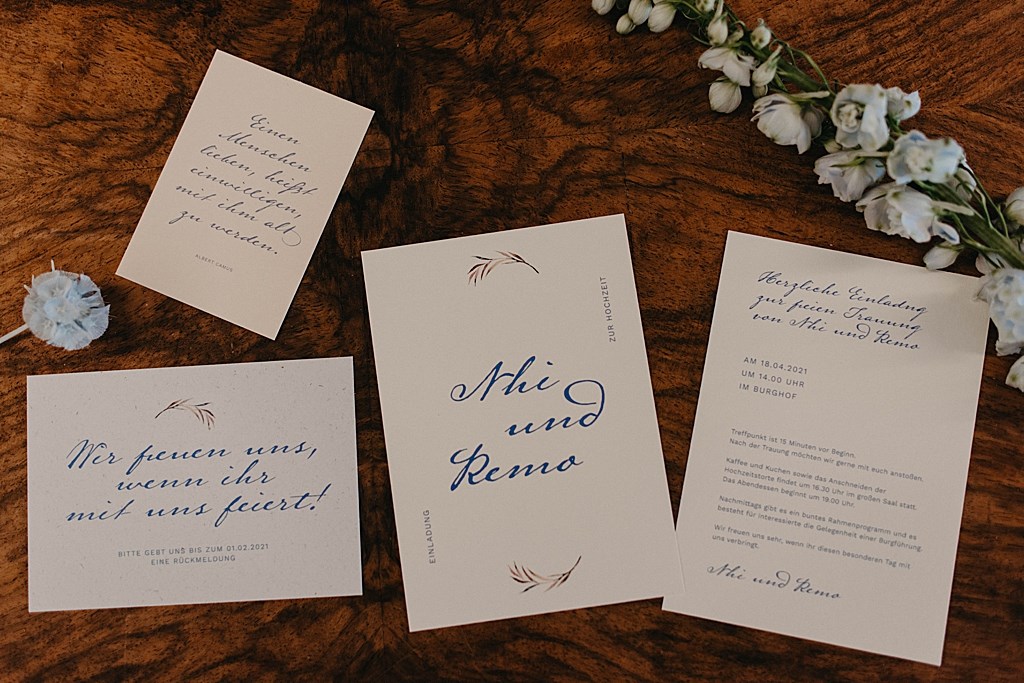 Einen
Menschen
lieben, heißt
einwilligen,
mit ihm alt
zu werden.
ALBERT CAMUS
Wir freuen uns,
wenn ihr
mit uns feiert!
BITTE GEBT UNS BIS ZUM 01.02.2021
EINE RÜCKMELDUNG
ZUR HOCHZEIT
Nhi
und
Remo
EINLADUNG
Herzliche Einladng
zur freien Trauung
von Nhi und Remo
AM 18.04.2021
UM 14.00 UHR
IM BURGHOF
Treffpunkt ist 15 Minuten vor Beginn.
Nach der Trauung möchten wir gerne mit euch anstoßen.
Kaffee und Kuchen sowie das Anschneiden der
Hochzeitstorte findet um 16.30 Uhr im großen Saal statt.
Das Abendessen beginnt um 19.00 Uhr.
Nachmittags gibt es ein buntes Rahmenprogramm und es
besteht für interessierte die Gelegenheit einer Burgführung.
Wir freuen uns sehr, wenn ihr diesen besonderen Tag mit
uns verbringt.
Nhi und Remo